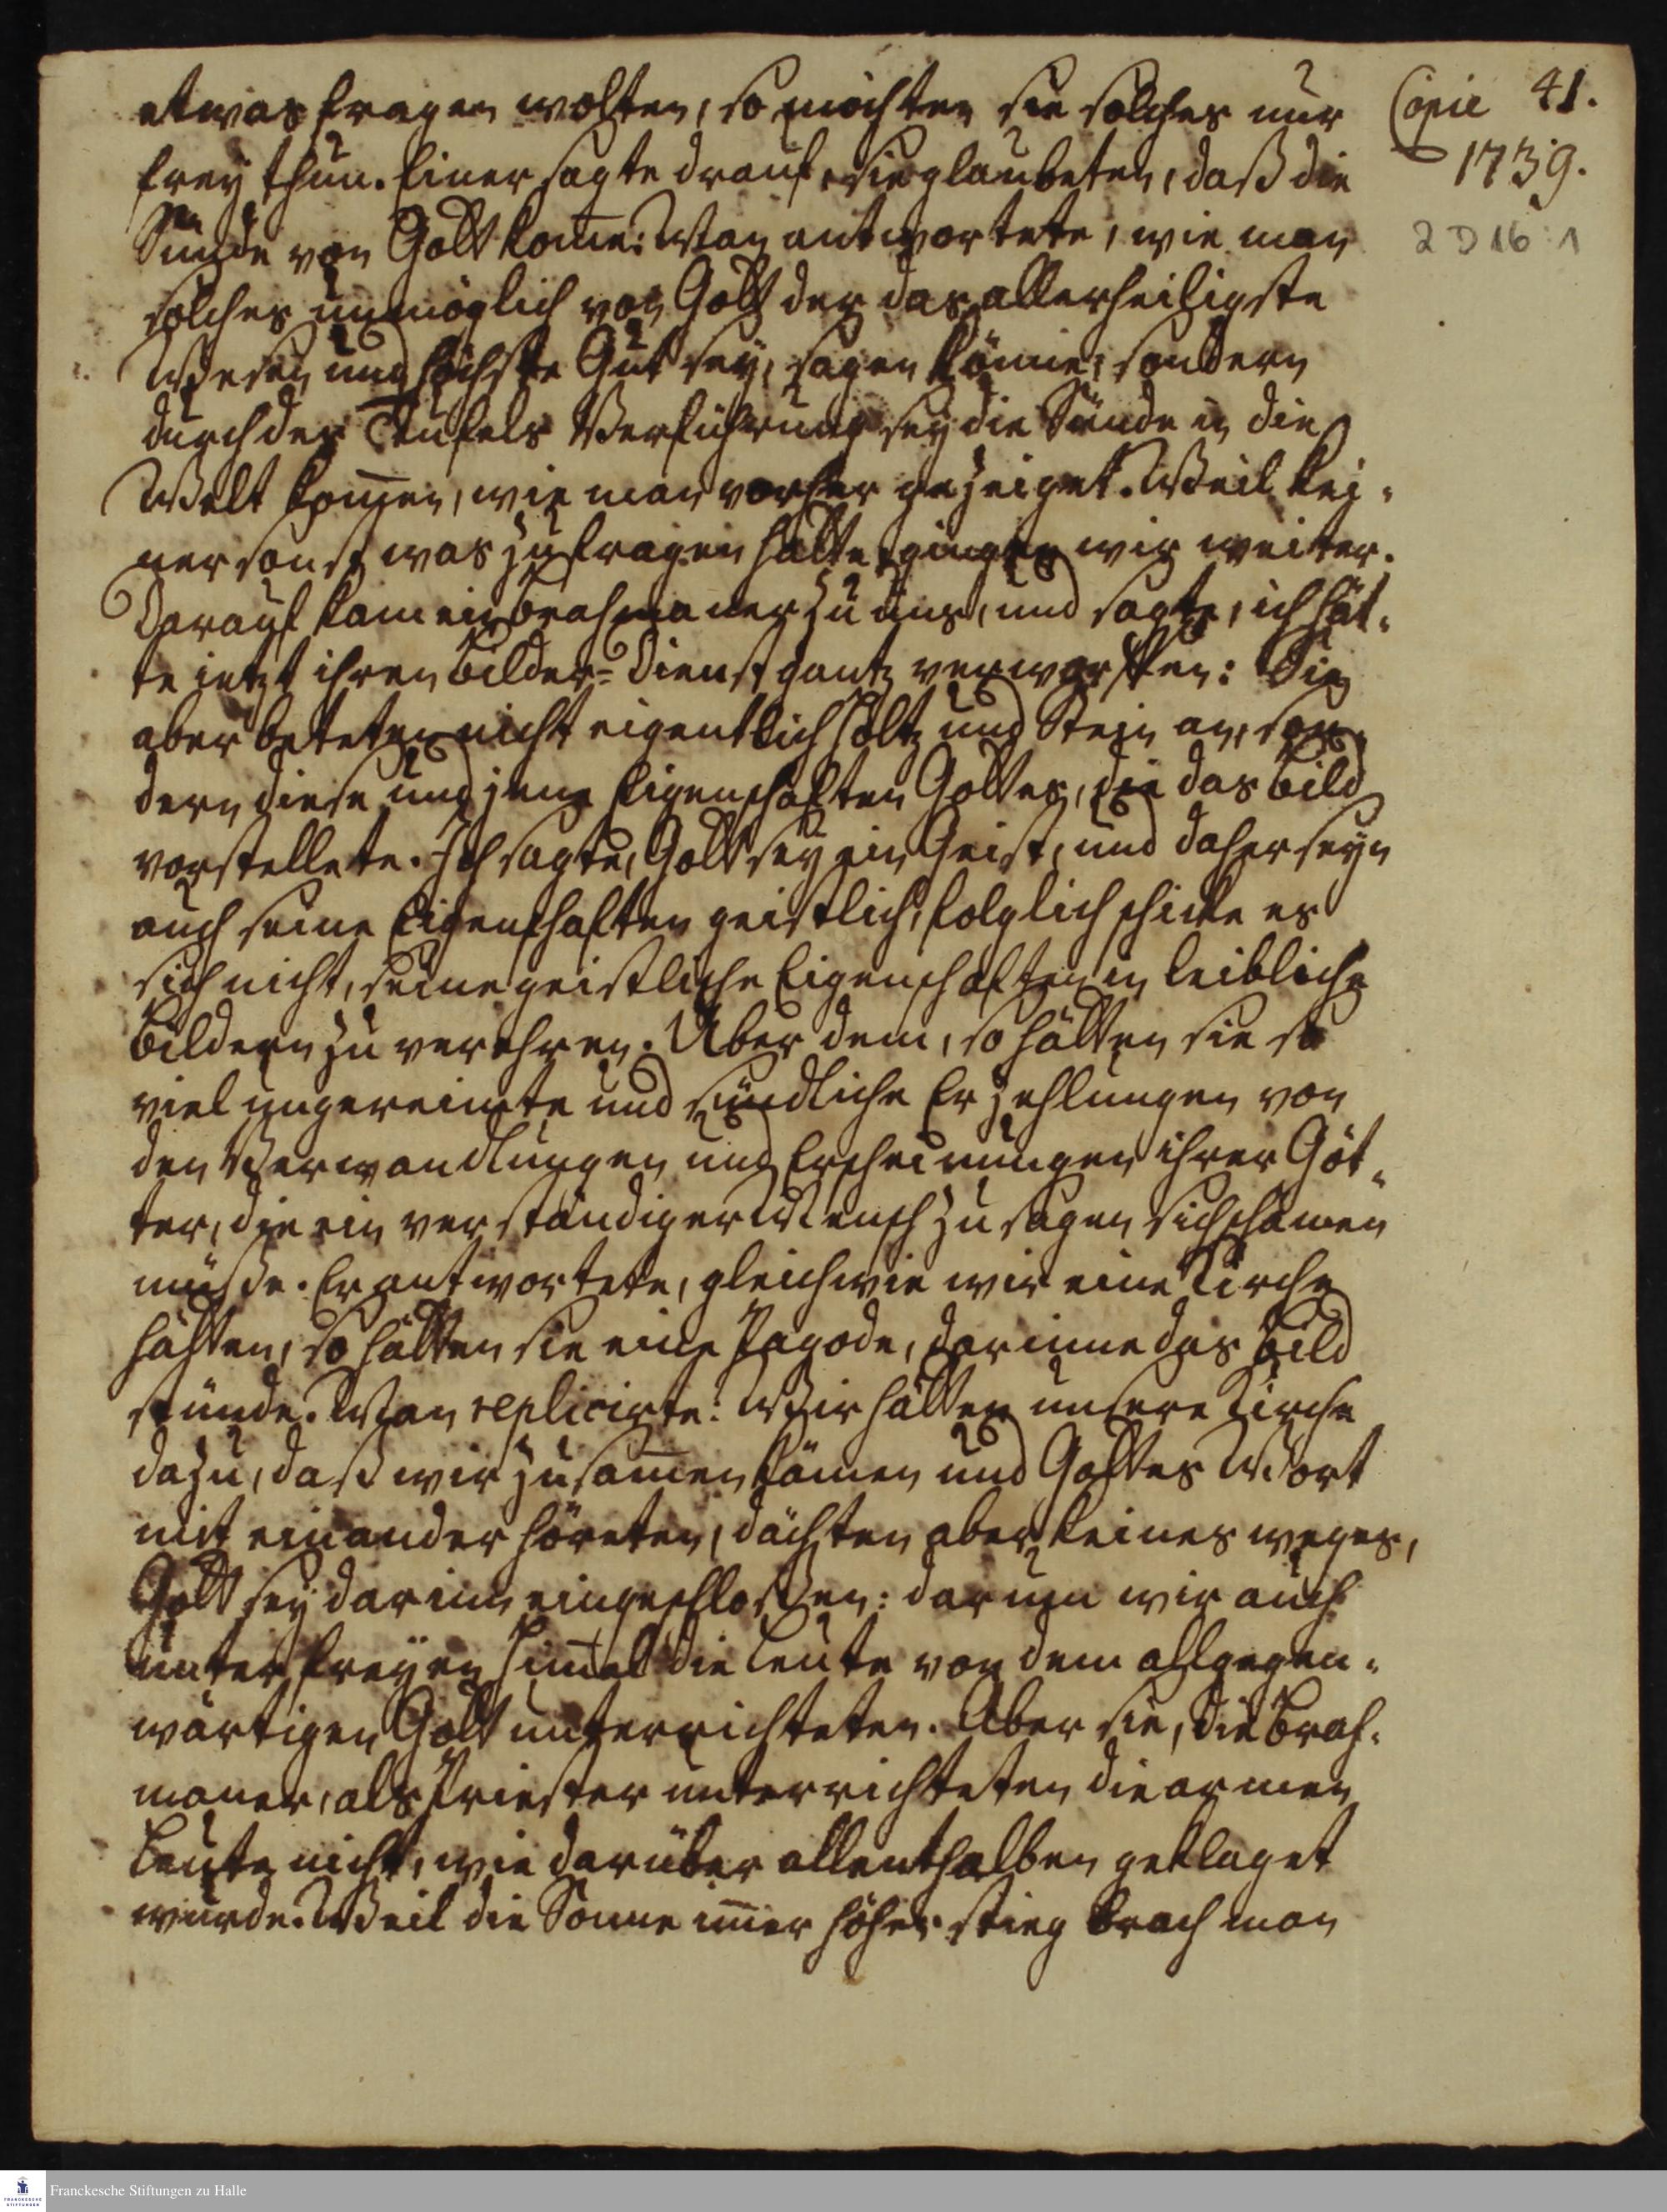 Copie 41.
1739.
2 D 16 : 1
etwas fragen wolten, so möchten sie solches nur
frey thun. Einer sagte drauf, sie glaubeten, daß die
Sünde von Gott kom̄e: Man antwortete, wie man
solches unmöglich von Gott der das allerheiligste
Wesen und höchste Gut sey, sagen könne; sondern
durch des Teufels Verführung sey die Sünde in die
Welt kom̄en, wie man vorher gezeiget. Weil kei-
ner sonst was zu fragen hatte, gingen wir weiter.
Darauf kam ein Brahmaner zu uns, und sagte, ich hät-
te jetzt ihren Bilder-Dienst gantz verworffen: Sie
aber beteten nicht eigentlich Holtz und Stein an, son-
dern diese und jene Eigenschaften Gottes, die das Bild
vorstellete. Ich sagte, Gott sey ein Geist, und daher seyn
auch seine Eigenschaften geistlich, folglich schicke es
sich nicht, seine geistliche Eigenschaften in leibliche
Bildern zu verehren. Über dem, so hätten sie so
viel ungereimte und sündliche Erzehlungen von
den Verwandlungen und Erscheinungen ihrer Göt-
ter, die ein verständiger Mensch zu sagen sich schämen
müße. Er antwortete, gleichwie wir eine Kirche
hätten, so hätten sie eine Pagode, darinne das Bild
stünde. Man replicirte: Wir hätten unsere Kirche
dazu, daß wir zusam̄en kämen und Gottes Wort
mit einander höreten, dächten aber keines weges,
Gott sey darinn eingeschloßen: darum wir auch
unter freyen Him̄el die Leute von dem allgegen-
wärtigen Gott unterrichteten. Aber sie, die Brah-
maner, als Priester unterrichteten die armen
Leute nicht, wie darüber allenthalben geklaget
würde. Weil die Sonne im̄er höher stieg brach man
Franckesche Stiftungen zu Halle
FRANCKESCHE
STIFTUNGEN